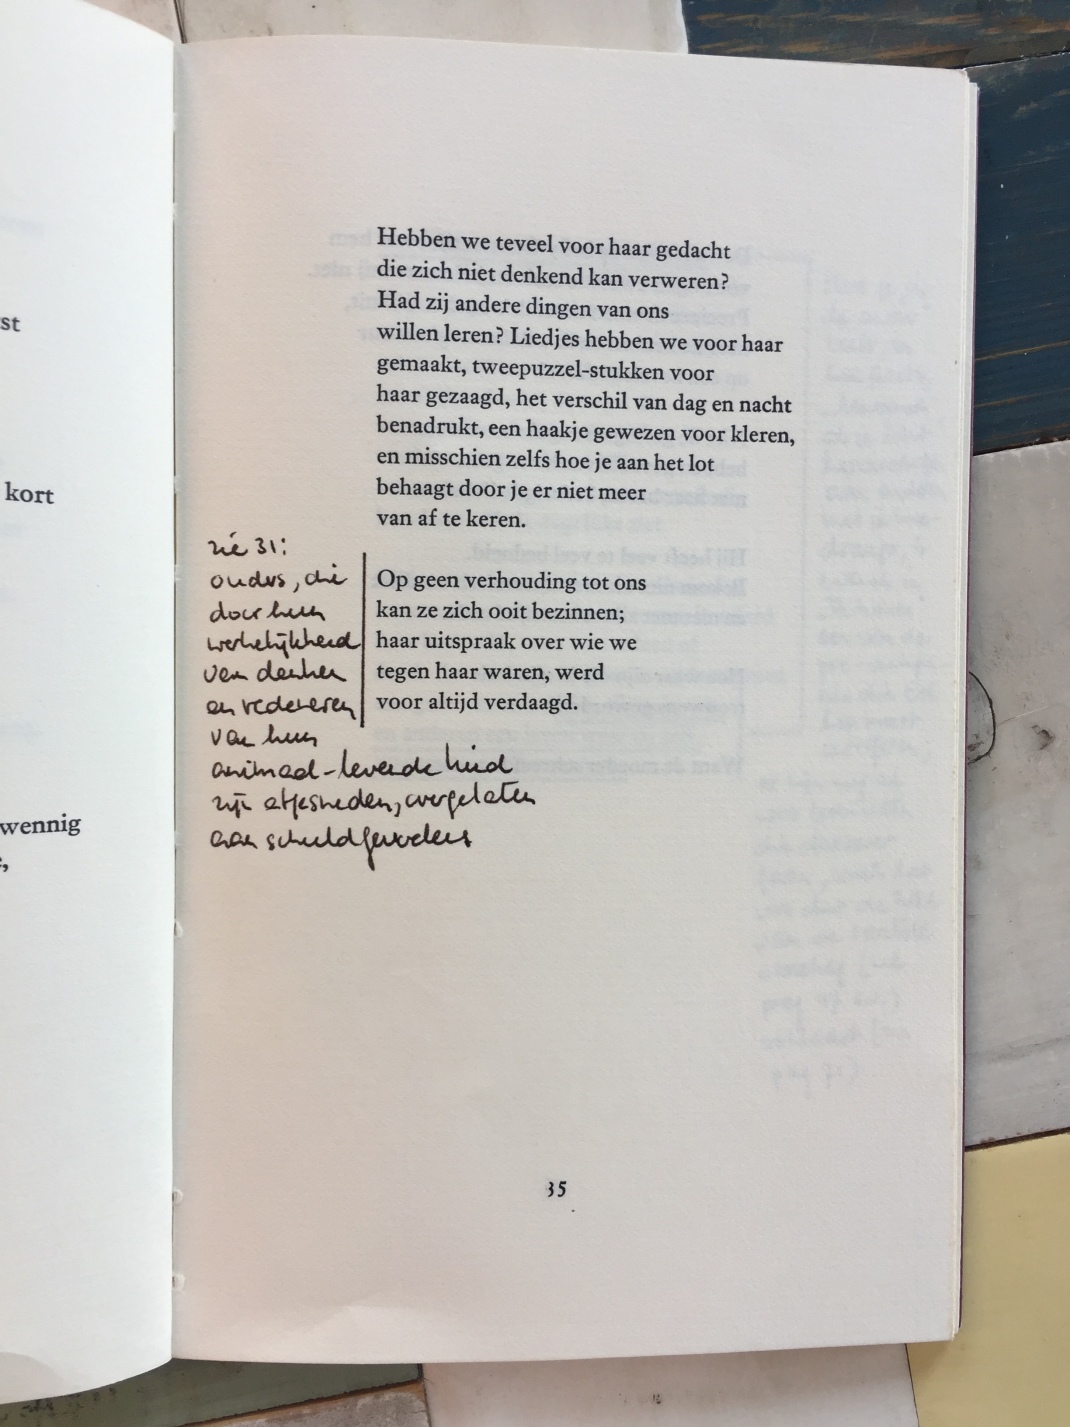 st
kort
wennig
Hebben we teveel voor haar gedacht
die zich niet denkend kan verweren?
Had zij andere dingen van ons
willen leren? Liedjes hebben we voor haar
gemaakt, tweepuzzel-stukken voor
haar gezaagd, het verschil van dag en nacht
benadrukt, een haakje gewezen voor kleren,
en misschien zelfs hoe je aan het lot
behaagt door je er niet meer
van af te keren.
zie 31:
ouders, die
door hun
werkelijkheid
van denken
en redeneren
van hun
animaal-levende kind
zijn afgesneden, overgelaten
aan schuldgevoelens
Op geen verhouding tot ons
kan ze zich ooit bezinnen;
haar uitspraak over wie we
tegen haar waren, werd
voor altijd verdaagd.
35